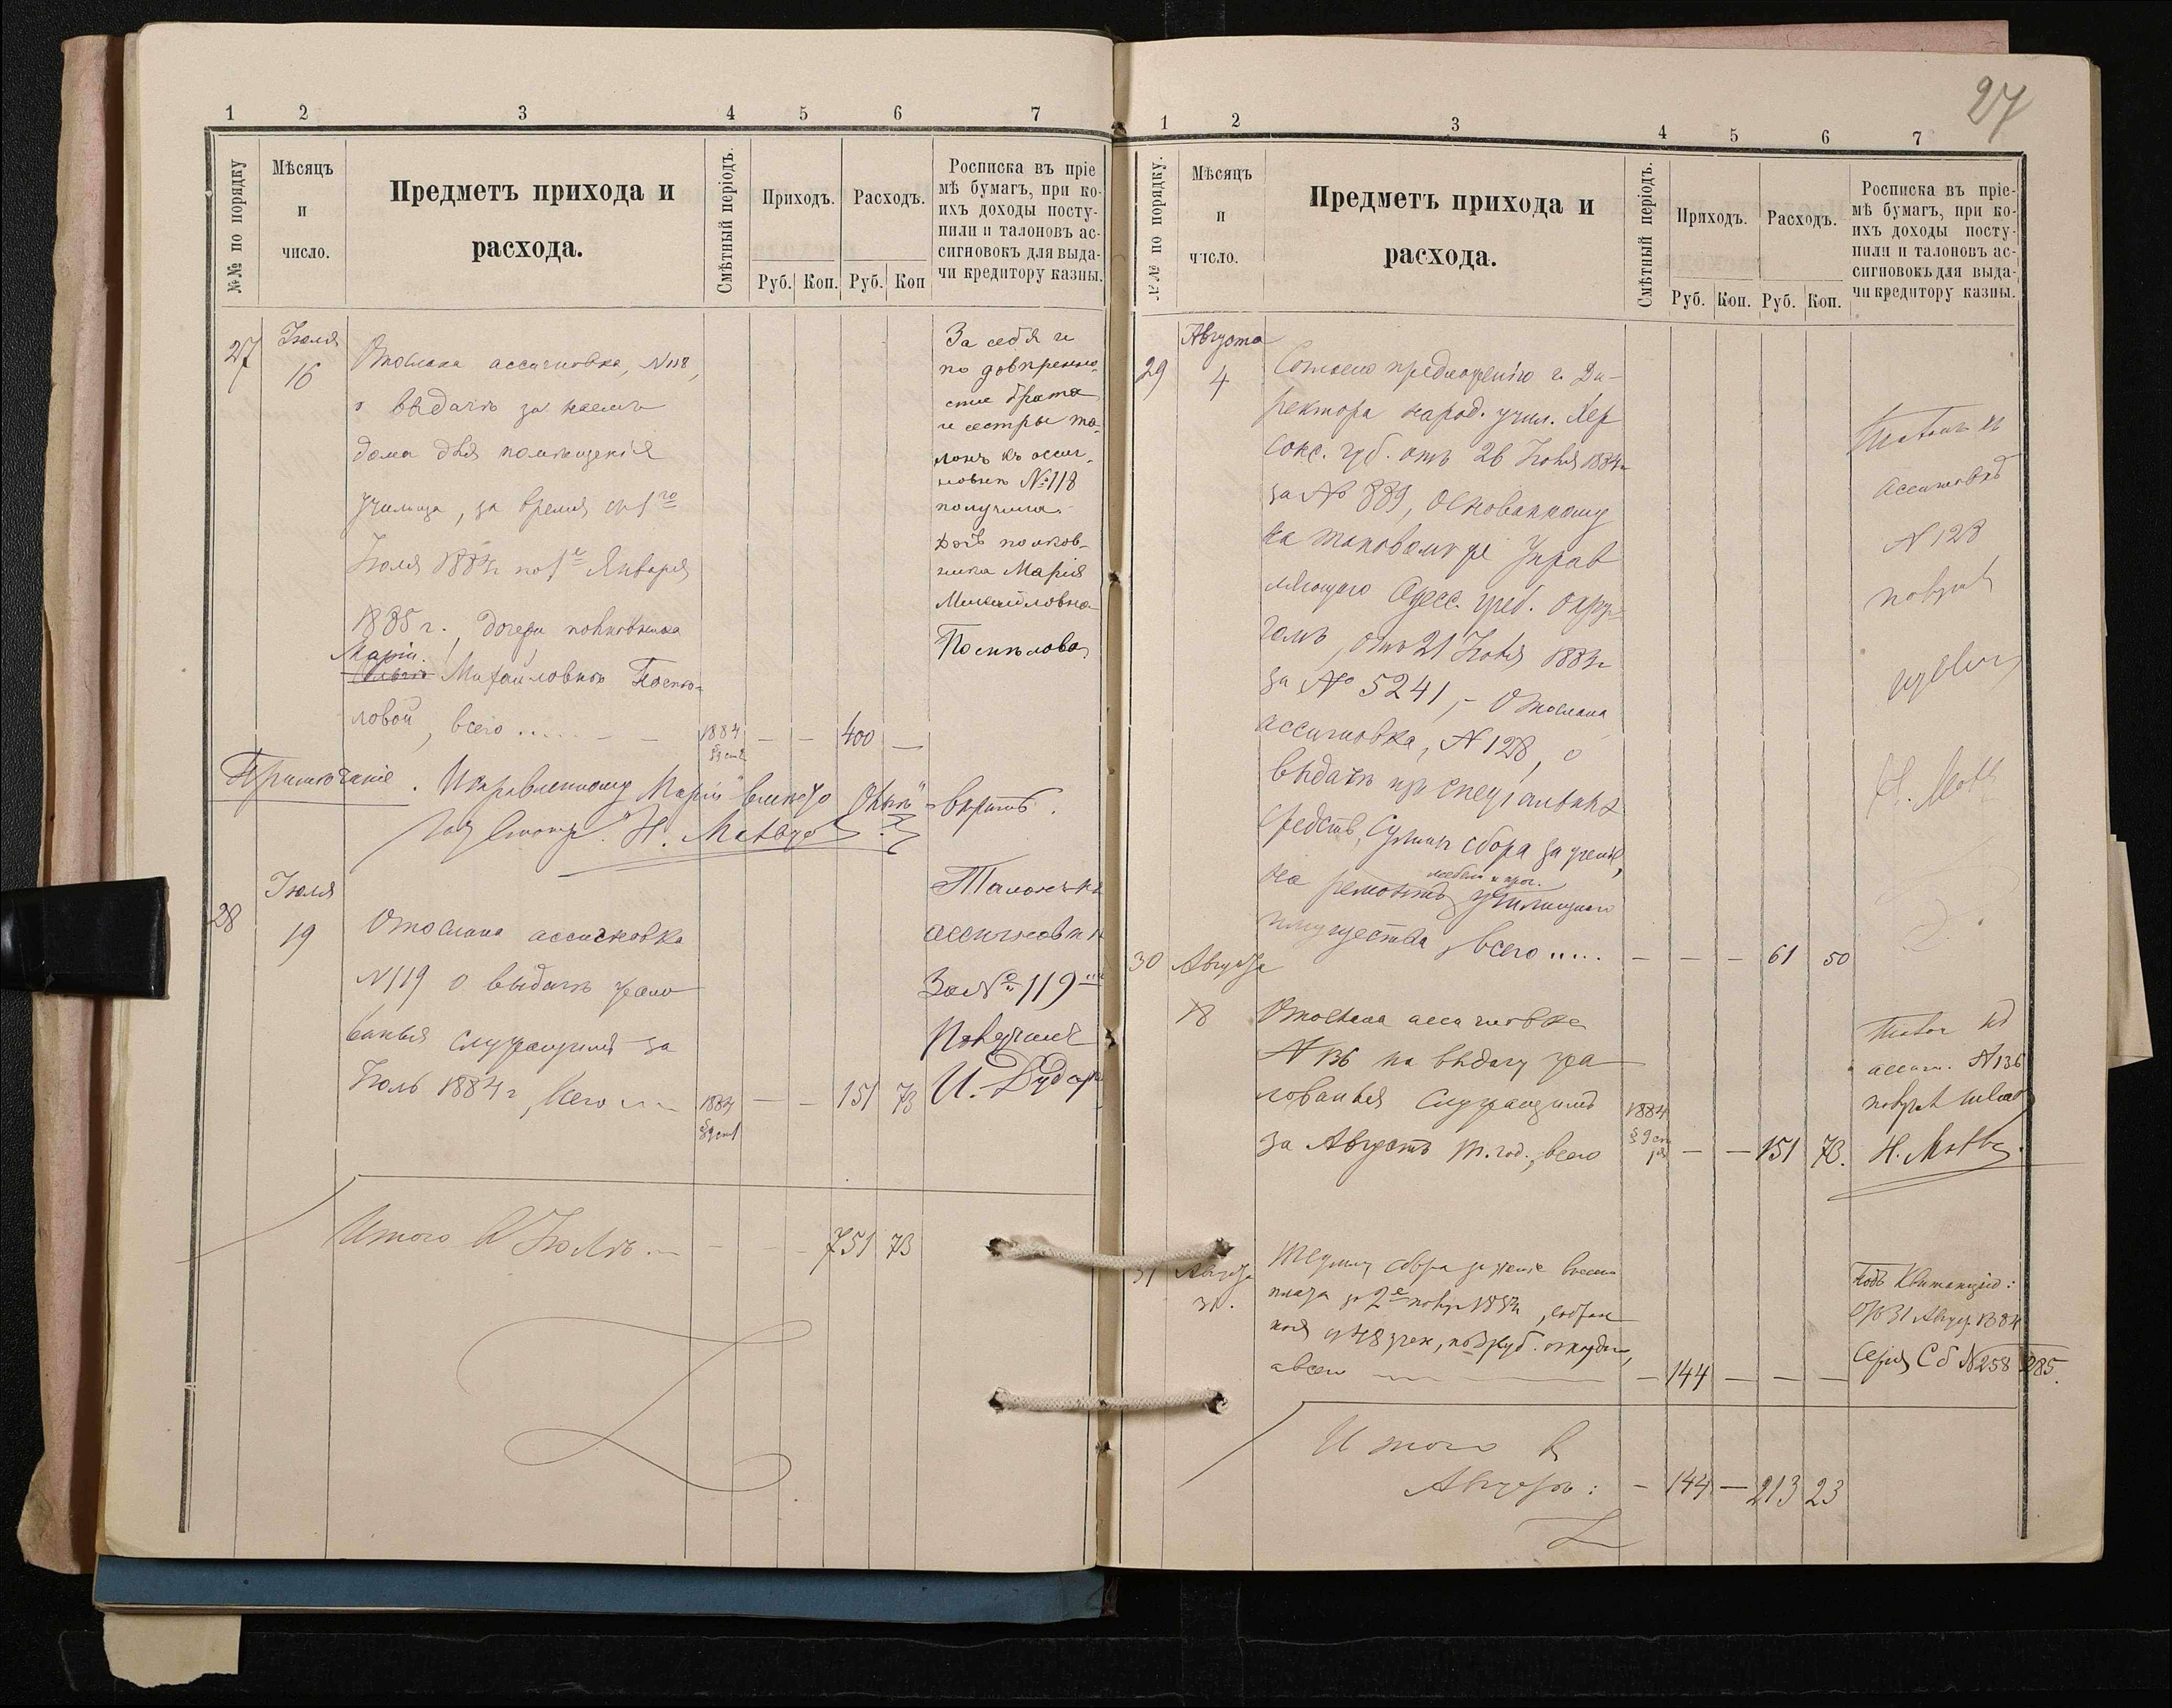 1 2 3 4 5 6 7
№№ по порядку
Мѣсяцъ
и
число.
Предметъ прихода и
расхода.
Смѣтный періодъ.
Приходъ. Расходъ.
Руб. Коп. Руб. Коп
Росписка въ пріе
мѣ бумагъ, при ко-
ихъ доходы посту-
пили и талоновъ ас-
сигновокъ для выда-
чи кредитору казны.
27 Іюля
16
Отослана ассигновка, N118,
о выдачѣ за наемъ
дома для помѣщенія
училища, за время съ 1го
Іюля 1884 г. по 1е Января
1885 г., дочери полковника
Маріи
Михайловнѣ Поспѣ-
ловой, всего ..... 1884 — — 400 —
За себя и
по довѣренно-
сти брата
и сестры та-
лонъ къ ассиг-
новкѣ №118
получила
дочь полков-
ника Марія
Михайловна
Поспѣлова
Примѣчаніе. Исправленному "Маріи" вмѣсто "Ольгѣ" вѣрить.
28 Іюля
19
Отослана ассигновка
N119 о выдачѣ жало
ванья служащимъ за
Іюль 1884 г., всего 1884 — — 151 73
Талонъ къ
ассигновкѣ
За № 119
Получилъ
Итого въ Іюлѣ — — 751 73
27
1 2 3 4 5 6 7
№№ по порядку.
Мѣсяцъ
и
число.
Предметъ прихода и
расхода.
Смѣтный періодъ.
Приходъ. Расходъ.
Руб. Коп. Руб. Коп.
Росписка въ пріе-
мѣ бумагъ, при ко-
ихъ доходы посту-
пили и талоновъ ас-
сигновокъ для выда-
чи кредитору казны.
29 Августа
4
Согласно предложенію г. Ди-
ректора народ. учил. Хер
сонс. губ. отъ 26 Іюня 1884 г.
за № 889, основанному
на таковомъ же Управ
ляющаго Одесс. учеб. окру-
гомъ, отъ 21 Іюня 1884 г.
за № 5241, — Отослана
ассигновка, N128, о
выдачѣ изъ спеціальныхъ
средствъ, суммы сбора за ученіе,
мебели и проч.
на ремонтъ училищнаго
имущества, всего ..... — — — 61 50
Талонъ къ
ассигновкѣ
N 128
получилъ
30 Августа
18
Отослана ассигновка
N 136 на выдачу жа
лованья служащимъ
за Августъ т. год., всего 1884 § 9 ст 1 — — 151 73.
Талон къ
ассигн. N136
31 Августа
31.
сбора за ученіе
за 2е полуг. 1884 г.,
изъ 48 учен., по 3 руб.
а всего — 144 — — —
Подъ квитанціею:
отъ 31 Август. 1884
Серія Сб N258285.
Итого въ
Августѣ: — 144 — 213 23